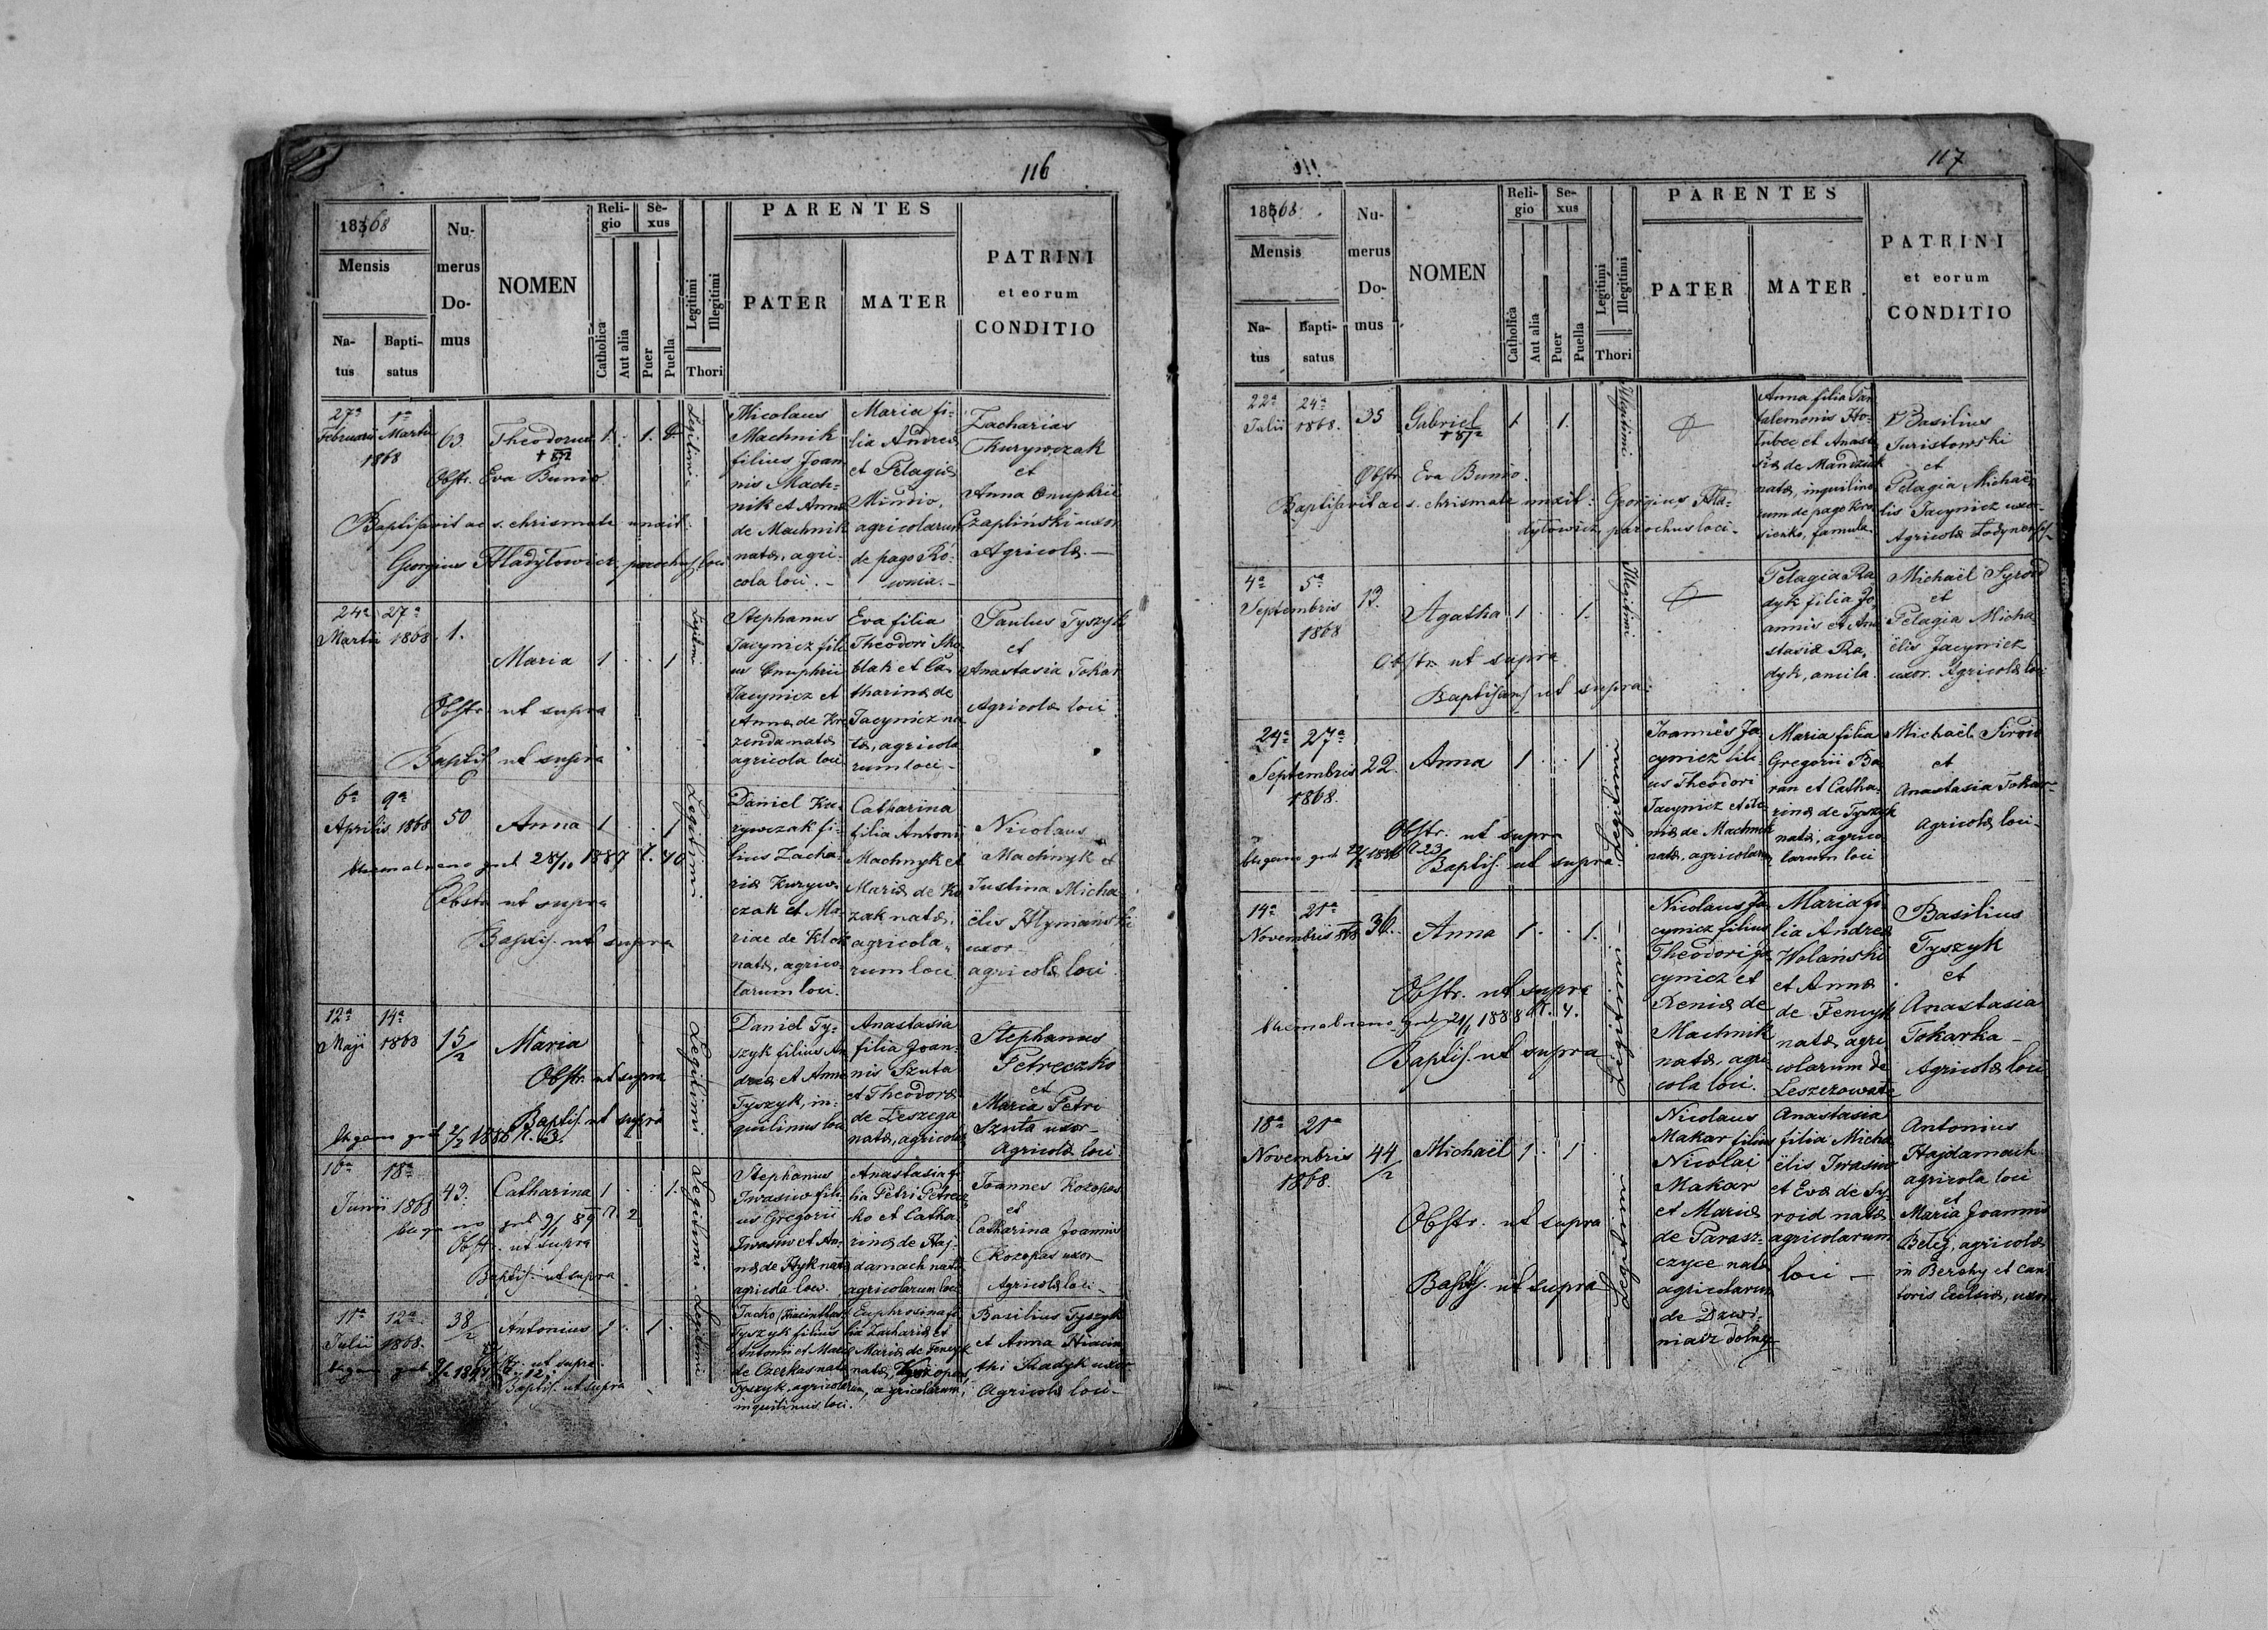 116
1868
Mensis
Natus
Baptisatus
Numerus Domus
NOMEN
Religio
Catholica
Aut alia
Sexus
Puer
Puella
Legitimi
Illegitimi
Thori
PARENTES
PATER
MATER
PATRINI
et eorum
CONDITIO
27a 1a
Februarii Martii
1868
63
Theodorus
1. 1.
Obstr. Eva Bunio
Baptisavit ac s. chrismate unxit:
Georgius Hładyłowicz parochus loci
Legitimi
Nicolaus
Machnik
filius Joan
nis Mach-
nik et Annæ
de Machnik
natæ, agri-
cola loci. -
Maria fi-
lia Andreæ
et Pelagiæ
agricolarum
de pago Ro-
wnia. -
Zacharias
Kurywczak
et
Anna Onuphrii
Czapliński uxor
Agricolæ. -
24a 27a
Martii 1868.
1.
Maria 1 1
Obstr. ut supra
Baptis. ut supra
Legitimi
Stephanus
Jacynicz fili
us Onuphrii
Jacynicz et
Annæ de
natæ
agricola loci
Eva filia
Theodori
et Ca-
tharinæ de
Jacynicz na
tæ, agricola
rum loci -
Paulus Tyszyk
et
Anastasia Tokar
Agricolæ loci
6a 9a
Aprilis 1868
50
Anna 1 1
28/10 1887
Obstr. ut supra
Baptis. ut supra
Legitimi
Daniel Ku-
rywczak fi-
lius Zacha-
riæ Kuryw-
czak et Ma-
riae de
natæ, agrico
larum loci.
Catharina
filia Antonii
Machnyk et
Mariæ de Ko
zak natæ,
agricola-
rum loci
Nicolaus
Machnyk et
Justina Micha-
ëlis
uxor
agricolæ loci
12a 14a
Maji 1868
15/2
Maria
Obstr. ut supra
Baptis. ut supra
Legitimi
Daniel Ty-
szyk filius An
dreæ et Annæ
Tyszyk, in-
quilinus loci
Anastasia
filia Joan-
nis Szuta
et Theodoræ
de
natæ, agricolæ
Stephanus
Petreczko
et
Maria Petri
Szuta uxor
Agricolæ loci
16a 18a
Junii 1868
43.
Catharina 1 1.
Obstr. ut supra
Baptis. ut supra
Legitimi
Stephanus
Iwasiw fili-
us Gregorii
Iwasiw et An-
næ de Hyk natæ
agricola loci
Anastasia fi
lia Petri Petrecz
ko et Catha-
rinæ de Haj-
damach natæ
agricolarum loci
Joannes Kozopas
et
Catharina Joannis
Kozopas uxor
Agricolæ loci -
11a 12a
Julii 1868.
38/2
Antonius 1 1.
ut supra
Baptis. ut supra
Legitimi
Jacko (Hiacinthus)
Tyszyk filius
Antonii et Mariæ
de Czerkas natæ
Tyszyk, agricolarum,
inquilinus loci.
Euphrosina fi
lia Zachariæ et
Mariæ de Fencyk
natæ,
agricolarum,
Basilius Tyszyk
et Anna Hiacin
thi uxor
Agricolæ loci -
117
1868
Mensis
Natus
Baptisatus
Numerus Domus
NOMEN
Religio
Catholica
Aut alia
Sexus
Puer
Puella
Legitimi
Illegitimi
Thori
PARENTES
PATER
MATER
PATRINI
et eorum
CONDITIO
22a 24a
Julii 1868.
35
Gabriel
1 1.
Obstr. Eva Bunio.
Baptisavit ac s. chrismate unxit: Georgius Hła-
dyłowicz, parochus loci -
Illegitimi
Anna filia Pan
talemonis Ho-
łubec et Anasta
siæ de
natæ, inquilino
rum de pago Kro
sienko, famula
Basilius
Juristowski
et
Pelagia Michaë
lis Jacynicz uxor
Agricolæ
4a 5a
Septembris
1868
13.
Agatha 1 1.
Obstr. ut supra
Baptisans ut supra.
Illegitimi
Pelagia Ra
dyk filia Jo-
annis et Ana
stasiæ Ra-
dyk, ancila
Michaël Syroid
et
Pelagia Micha
ëlis Jacynicz
uxor. Agricolæ loci
24a 27a
Septembris
1868.
22.
Anna 1 1
Obstr. ut supra
Baptis. ut supra
Legitimi
Joannes Ja
cynicz fili-
us Theodori
Jacynicz et
de Machnik
natæ, agricolarum
Maria filia
Gregorii Ba
ran et Catha-
rinæ de Tyszyk
natæ, agrico
larum loci
Michaël Siroid
et
Anastasia Tokar
Agricolæ loci -
14a 21a
Novembris 1868
36.
Anna 1 1.
Obstr. ut supra
21/1 1888 N. 4.
Baptis. ut supra
Legitimi
Nicolaus Ja-
cynicz filius
Theodori Ja-
cynicz et
Xeniæ de
Machnik
natæ, agri
cola loci.
Maria fi-
lia Andreæ
Wolański
et Annæ
de Fencyk
natæ agri-
colarum de
Leszczowate
Basilius
Tyszyk
et
Anastasia
Tokarka -
Agricolæ loci
18a 21a
Novembris
1868.
44/2
Michaël 1 1
Obstr. ut supra
Baptis. ut supra
Legitimi
Nicolaus
Makar filius
Nicolai
Makar
et Mariæ
de Parasz-
czyce natæ
agricolarum
de Dzwi-
niacz dolny
Anastasia
filia Micha
ëlis Iwasiw
et Evæ de Sy-
roid natæ
agricolarum
loci -
Antonius
Hajdamach
agricola loci
et
Maria Joannis
Betej, agricolæ
in Berehy et can
toris Eclesiæ, uxor